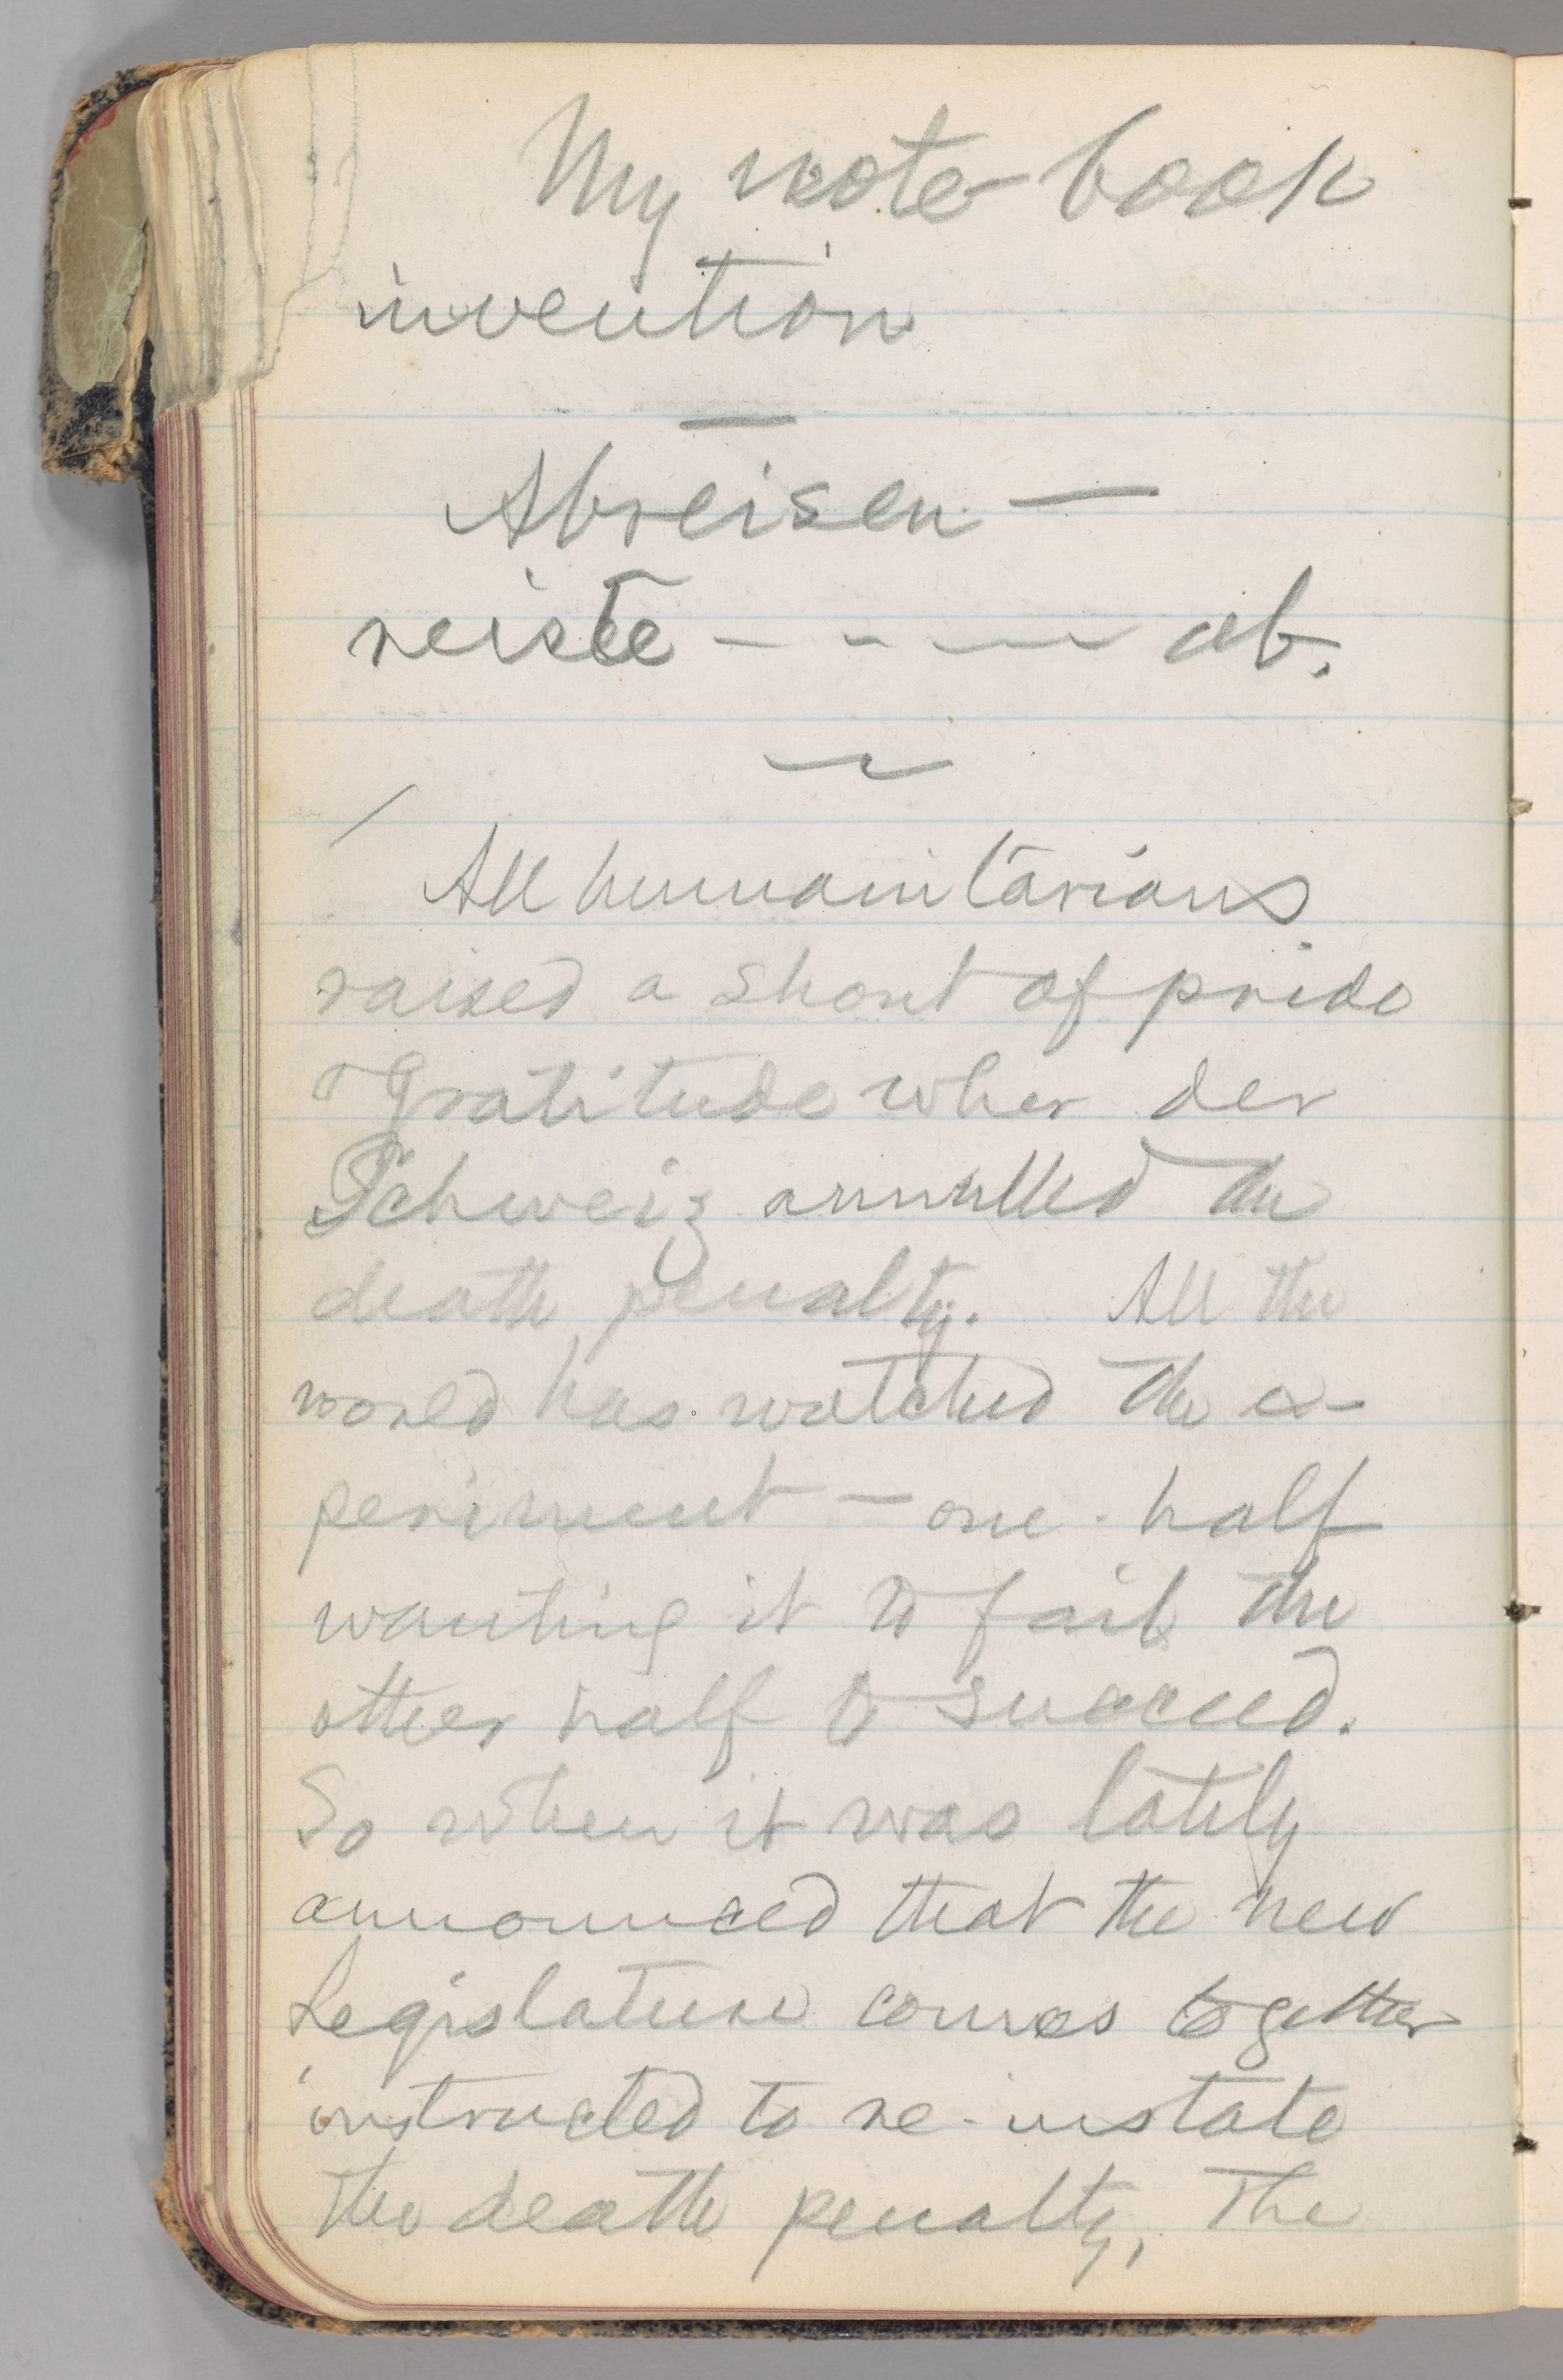 My note book
invention
—
Abreisen —
reiste - - — ab.
All humanitarians
raised a shout of pride
& gratitude when der
Schweiz annulled the
death penalty. All the
world has watched the ex-
periment — one-half
wanting it to fail the
other half to succeed.
So when it was lately
announced that the new
Legislature comes together
instructed to re-instate
the death penalty, the